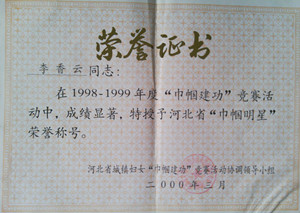 荣誉证书
李香云同志：
在1998-1999年度“巾帼建功”竞赛活
动中，成绩显著，特授予河北省“巾帼明星”
荣誉称号。
河北省城镇妇女“巾帼建功”竞赛活动协调领导小组
二000年三月